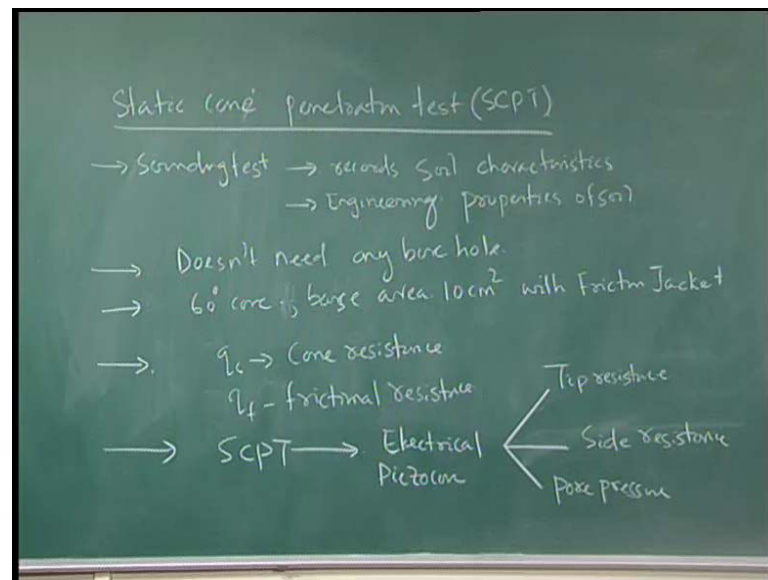 Static cone penetration test (SCPT)
→ Sounding test → records Soil characteristics
→ Engineering properties of soil
→ Doesn't need any bore hole.
→ 60° cone ; base area 10cm² with Friction Jacket
→ qc → Cone resistance
qf - frictional resistance
→ SCPT → Electrical Piezocone
Tip resistance
Side resistance
Pore pressure